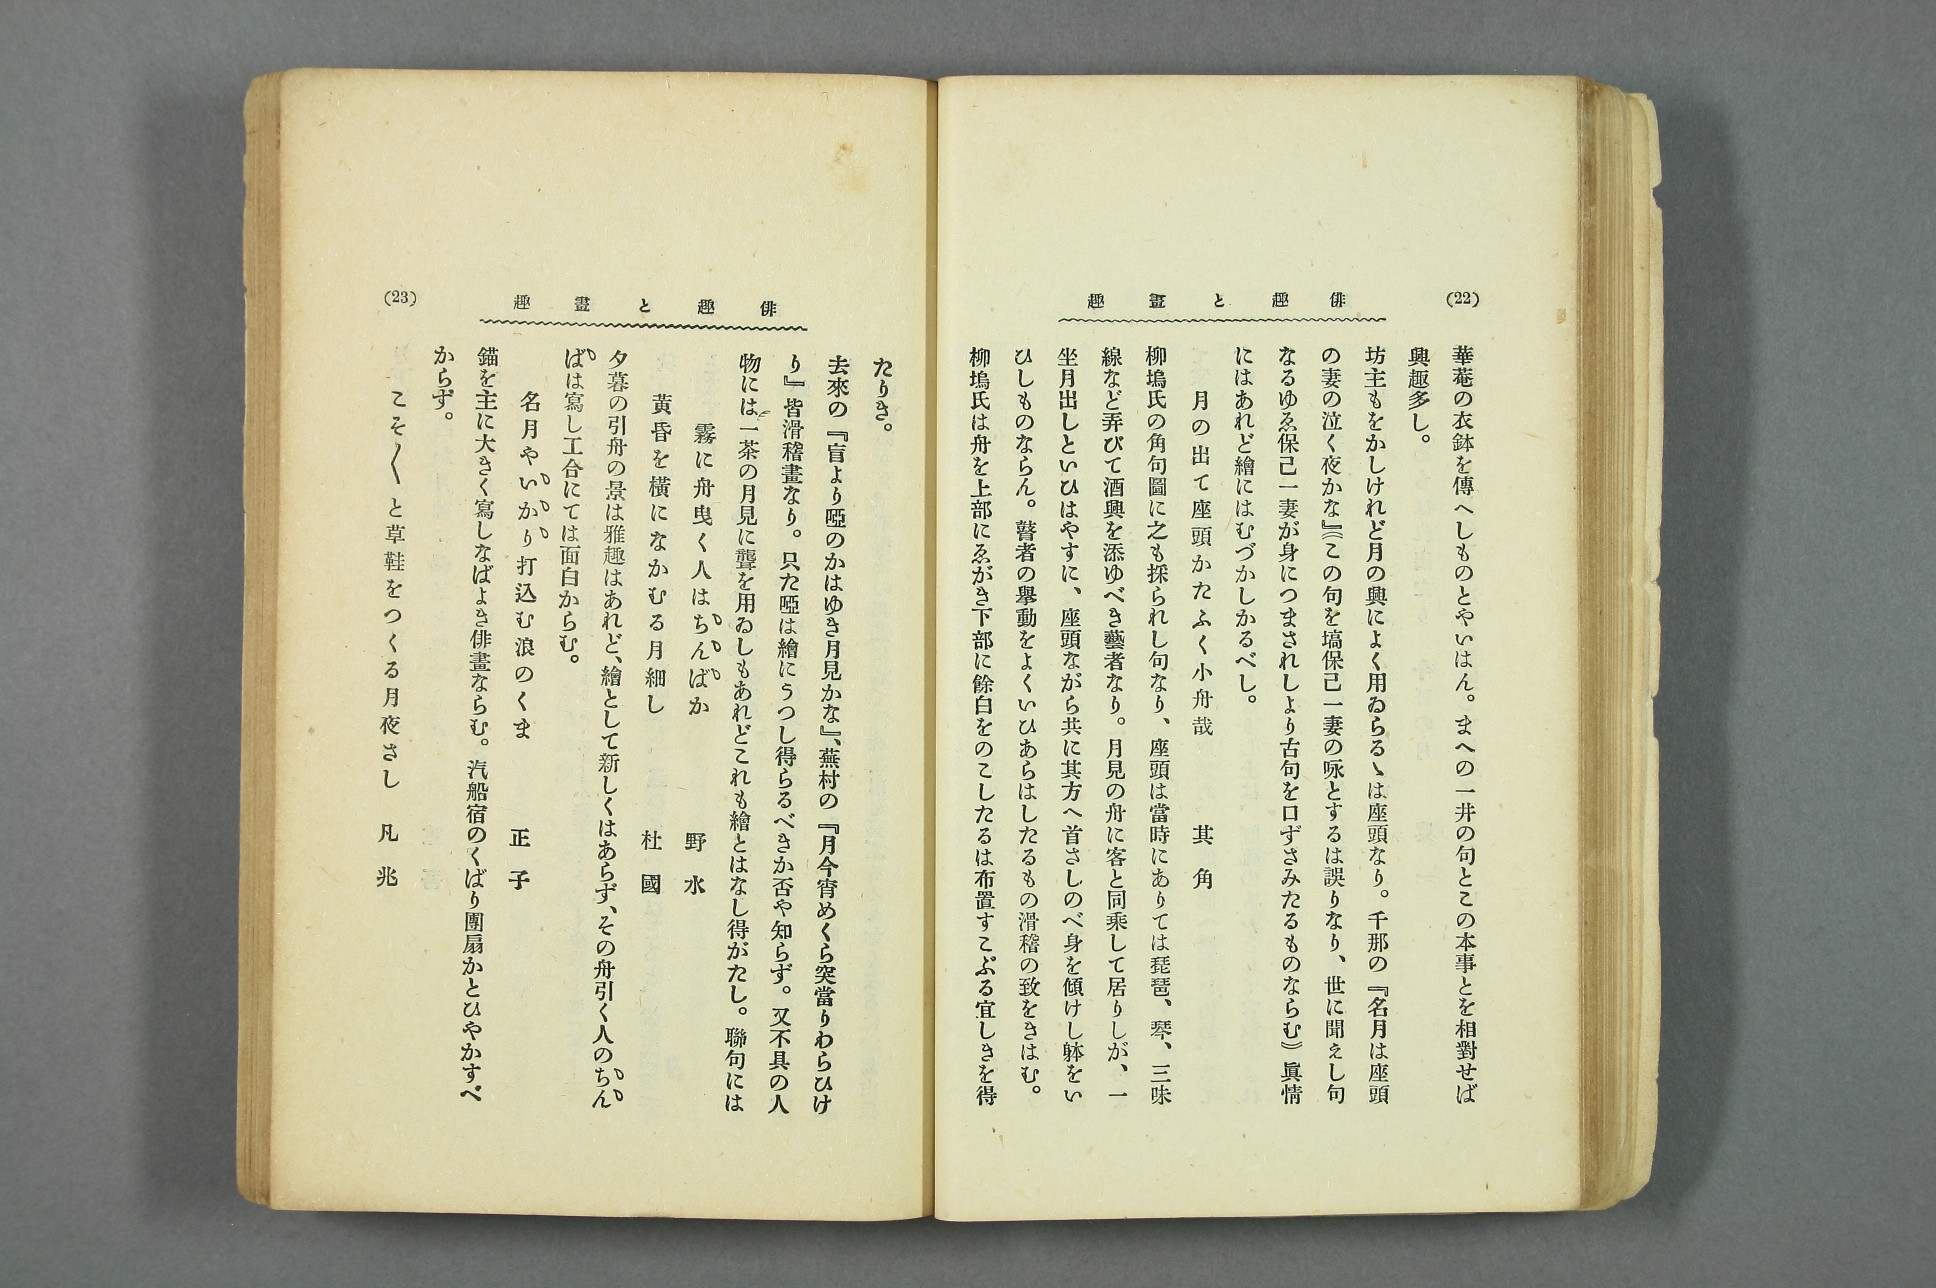 (22)
俳趣と畫趣
華菴の衣鉢を傳へしものとやいはん。まへの一井の句とこの本事とを相對せば
興趣多し。
坊主もをかしけれど月の興によく用ゐらるゝは座頭なり。千那の『名月は座頭
の妻の泣く夜かな』《この句を塙保己一妻の咏とするは誤りなり、世に聞えし句
なるゆゑ保己一妻が身につまされしより古句を口ずさみたるものならむ》眞情
にはあれど繪にはむづかしかるべし。
月の出て座頭かたふく小舟哉　其角
柳塢氏の角句圖に之も採られし句なり、座頭は當時にありては琵琶、琴、三味
線など弄びて酒興を添ゆべき藝者なり。月見の舟に客と同乘して居りしが、一
坐月出しといひはやすに、座頭ながら共に其方へ首さしのべ身を傾けし躰をい
ひしものならん。瞽者の擧動をよくいひあらはしたるもの滑稽の致をきはむ。
柳塢氏は舟を上部にゑがき下部に餘白をのこしたるは布置すこぶる宜しきを得
(23)
俳趣と畫趣
たりき。
去來の『盲より啞のかはゆき月見かな』、蕪村の『月今宵めくら突當りわらひけ
り』皆滑稽畫なり。只た啞は繪にうつし得らるべきか否や知らず。又不具の人
物には一茶の月見に聾を用ゐしもあれどこれも繪とはなし得がたし。聯句には
霧に舟曳く人はちんばか　野水
黃昏を横になかむる月細し　杜國
夕暮の引舟の景は雅趣はあれど、繪として新しくはあらず、その舟引く人のちん
ばは寫し工合にては面白からむ。
名月やいかり打込む浪のくま　正子
錨を主に大きく寫しなばよき俳畫ならむ。汽船宿のくばり團扇かとひやかすべ
からず。
こそ〱と草鞋をつくる月夜さし　凡兆